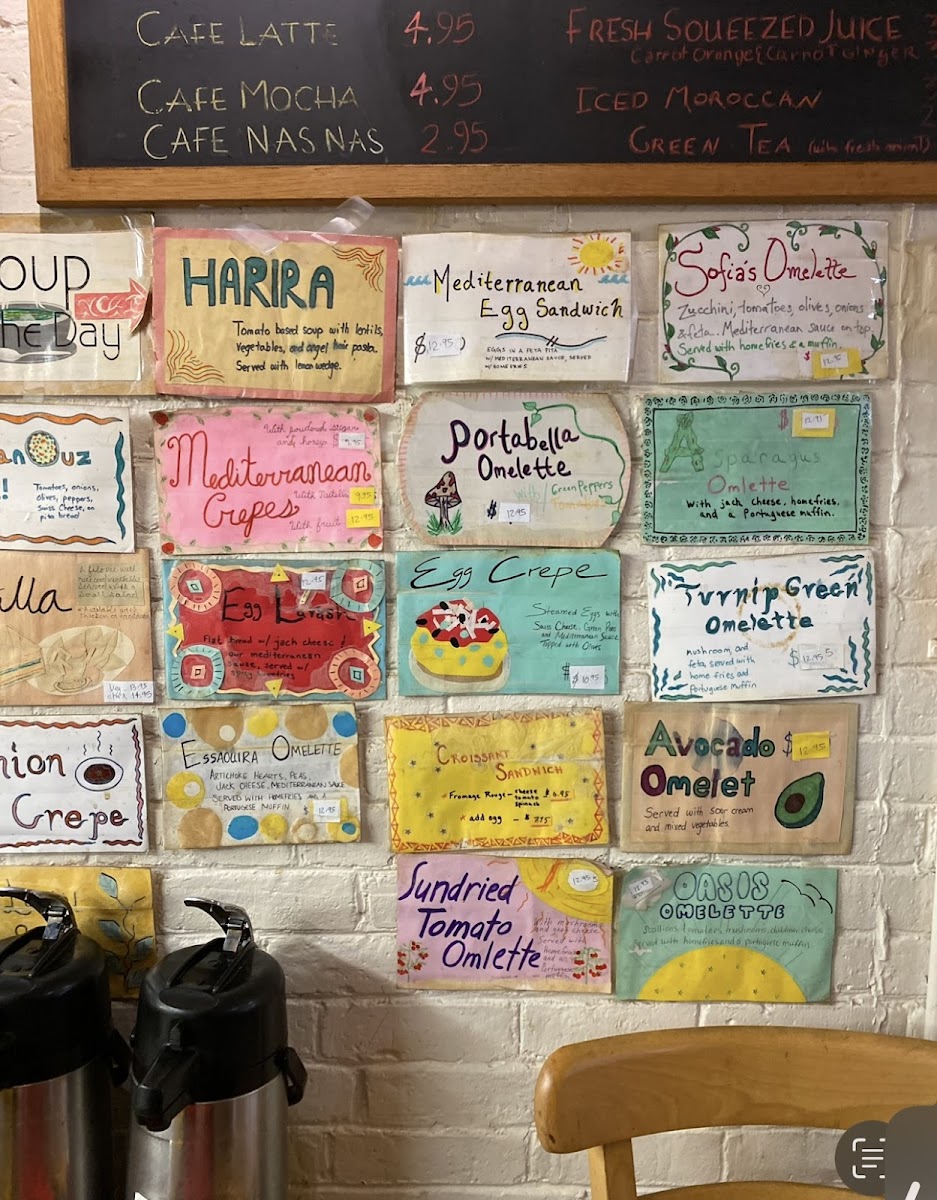 CAFE LATTE 4.95
CAFE MOCHA 4.95
CAFE NAS NAS 2.95
FRESH SQUEEZED JUICE
Carrot Orange & Carrot GINGER
ICED MOROCCAN
GREEN TEA (with fresh mint)
OUP
he Day
HARIRA
Tomato based soup with lentils,
vegetables, and angel hair pasta.
Served with lemon wedge.
Mediterranean
Egg Sandwich
$12.95
EGGS IN A FETA PITA
W/ MEDITERRANEAN SAUCE, SERVED
W/ HOME FRIES
Sofia's Omelette
Zucchini, tomatoes, olives, onions
& feta. Mediterranean sauce on top.
Served with homefries & a muffin.
$ 12.95
an Ouz
!
Tomatoes, onions,
olives, peppers,
Swiss Cheese, on
pita bread
Mediterranean
Crepes
With powdered sugar
and honey $ 9.95
With Nutella 9.95
With fruit 12.95
Portabella
Omelette
With Green Peppers
Tomatoes
$ 12.95
Asparagus
Omlette
With jack cheese, homefries,
and a Portuguese muffin.
$ 12.95
lla
Veg - 13.95
chick 14.95
Egg
12.95
Flat bread w/ jach cheese &
our mediterranean
sauce, served w/
spicy homefries
Egg Crepe
Steamed Eggs with
Swiss Cheese, Green Peas
and Mediterranean Sauce
Topped with Olives
$ 10.95
Turnip Green
Omelette
mushroom, and
feta, served with
home fries and
Portuguese muffin
$ 12.95
nion
Crepe
ESSAOUIRA OMELETTE
ARTICHOKE HEARTS, PEAS,
JACK CHEESE, MEDITERRANEAN SAUCE
SERVED WITH HOMEFRIES AND A
PORTUGUESE MUFFIN
$ 12.95
CROISSANT
SANDWICH
Fromage Rouge - cheese
tomato
spinach
add egg - $
Avocado
Omelet
$ 12.95
Served with sour cream
and mixed vegetables.
Sundried
Tomato
Omlette
12.95
With mushrooms
and goat cheese
Served with
homefries
and a
Portuguese
muffin
OASIS
OMELETTE
12.95
Scallions, tomatoes, mushrooms, cheese
Served with homefries and a portuguese muffin